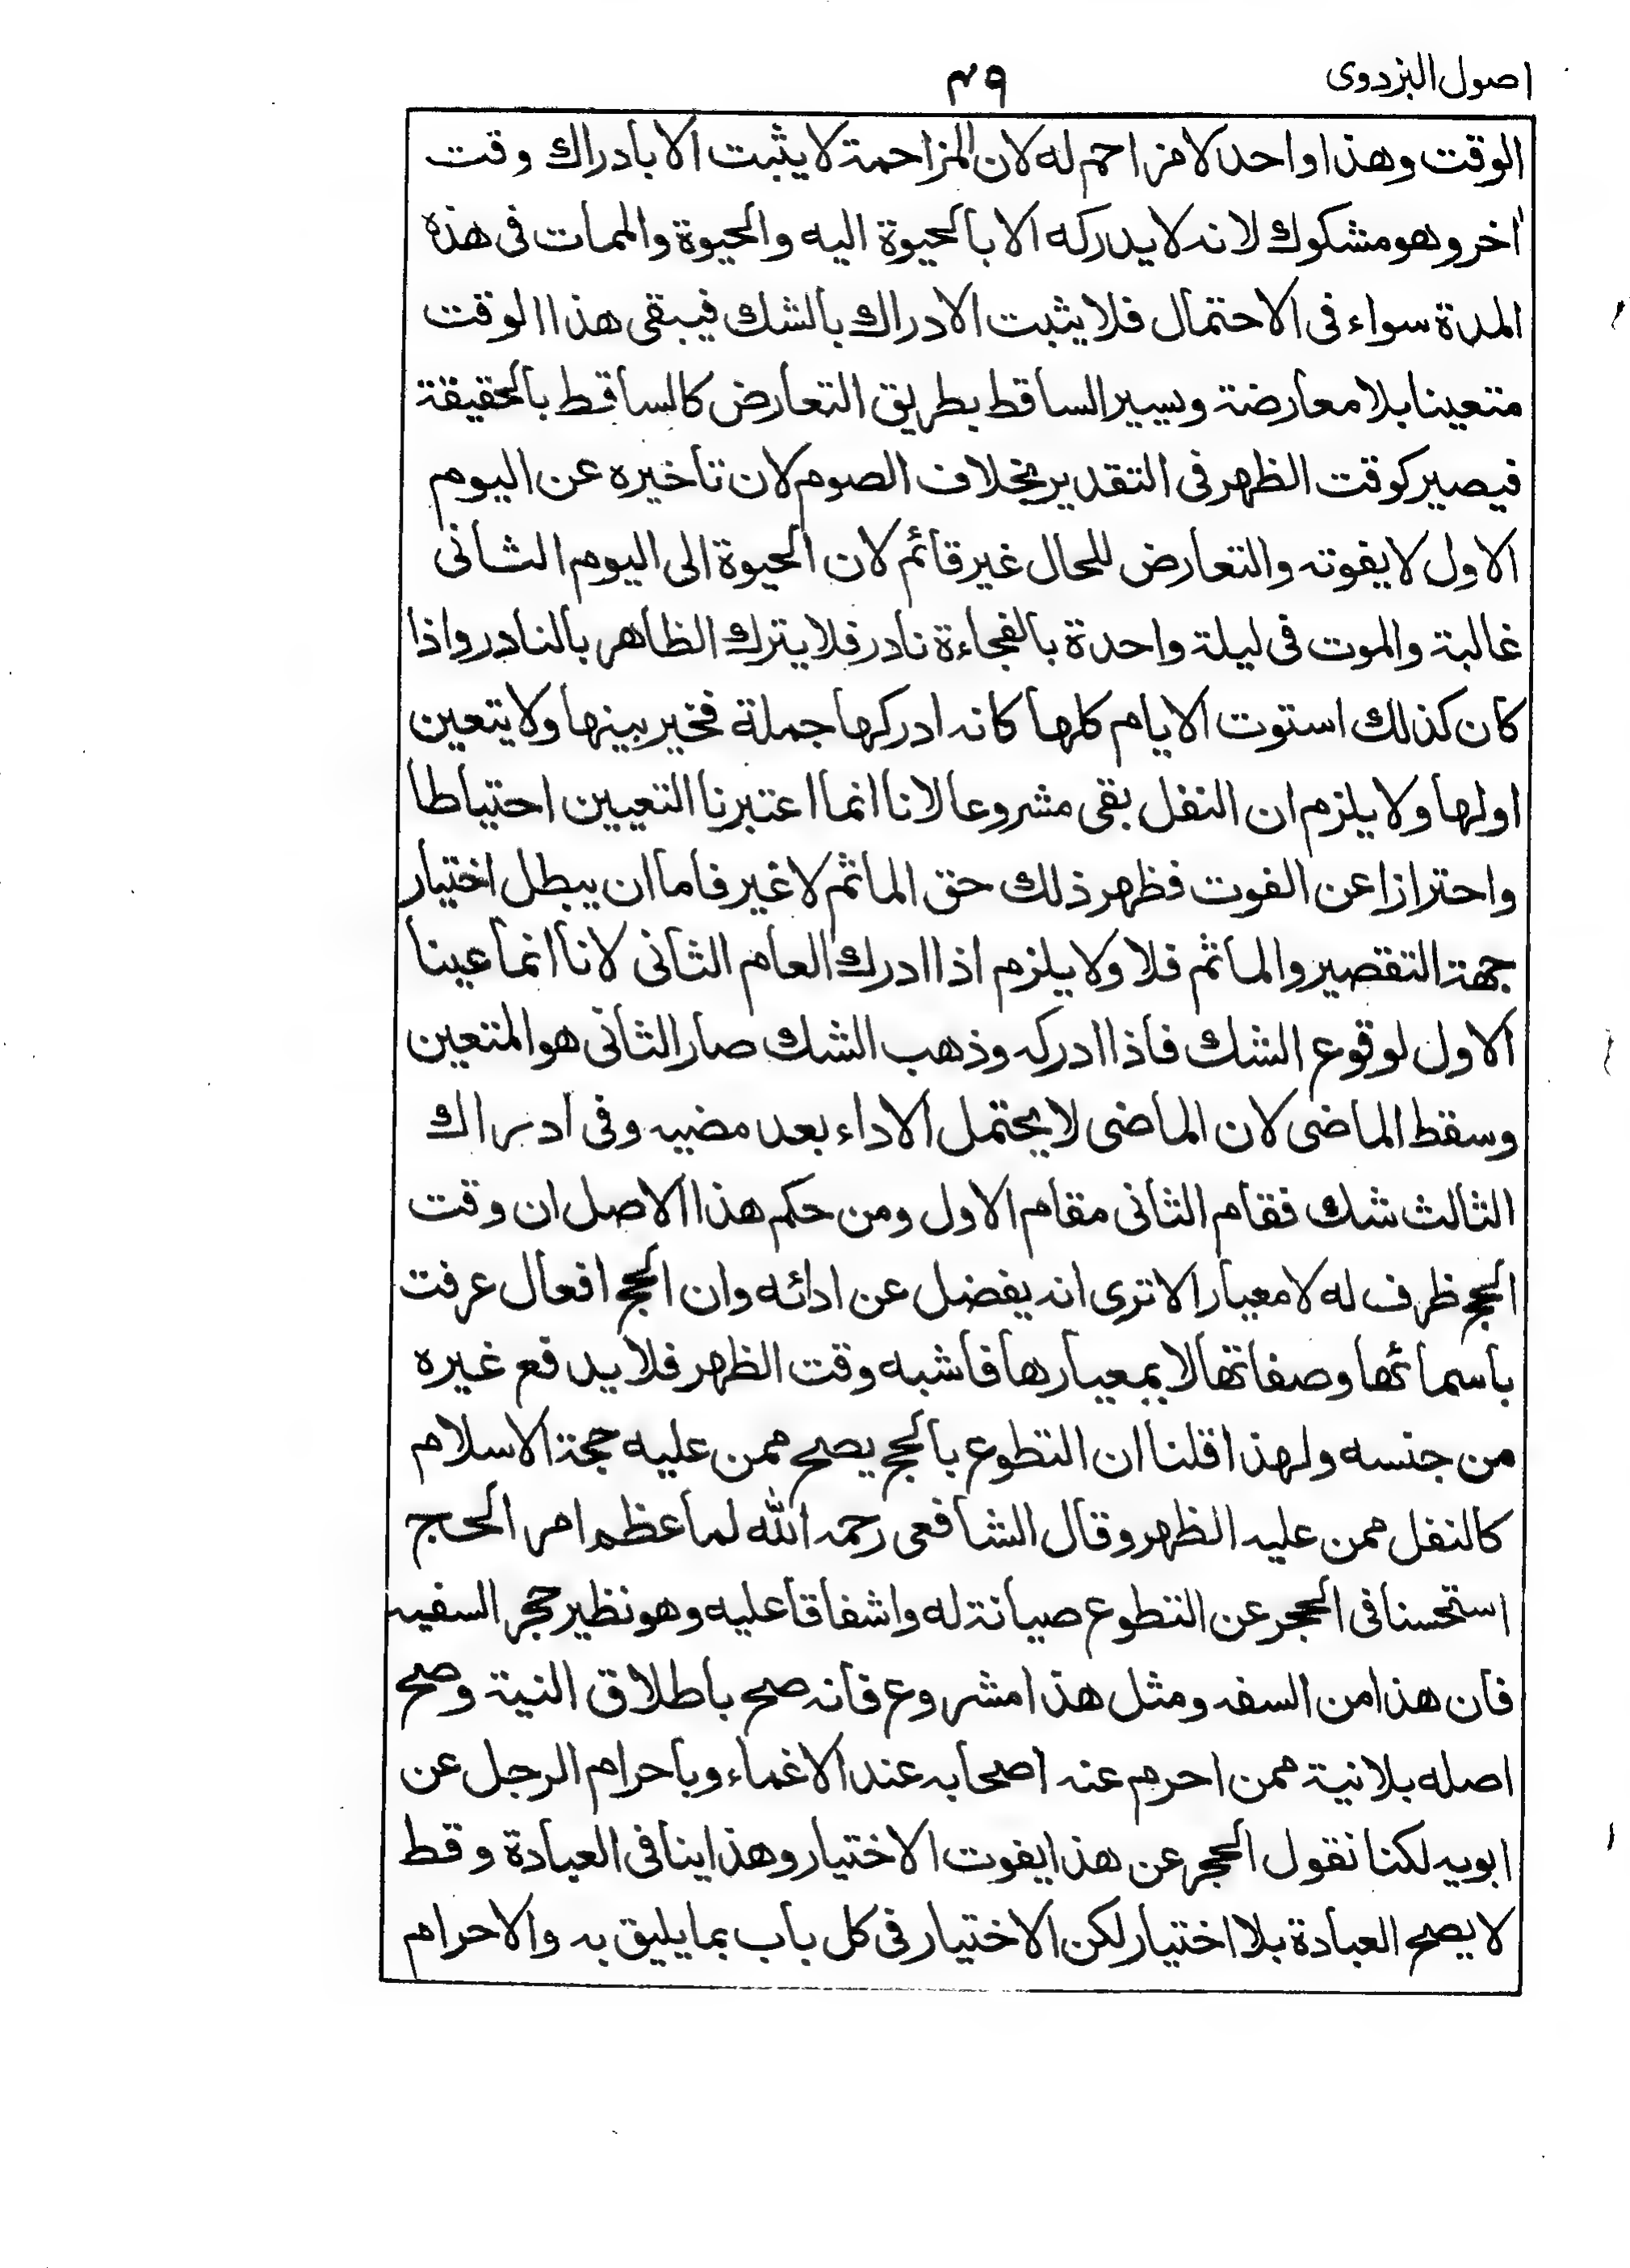 اصول البزدوی
۴۹
الوقت وهذا واحد لا مزاحم له لان المزاحمة لا يثبت الا بادراك وقت
اٰخر وهو مشكوك لانه لا يدركه الا بالحيوة اليه والحيوة والممات فى هذه
المدة سواء فى الاحتمال فلا يثبت الادراك بالشك فيبقى هذا الوقت
متعينا بلا معارضة ويسير الساقط بطريق التعارض كالساقط بالحقيقة
فيصير كوقت الظهر فى التقدير بخلاف الصوم لان تاخيره عن اليوم
الاول لا يفوته والتعارض للحال غير قائم لان الحيوة الى اليوم الثانى
غالبة والموت فى ليلة واحدة بالفجاءة نادر فلا يترك الظاهر بالنادر واذا
كان كذلك استوت الايام كلها كانه ادركها جملة فخير بينها ولا يتعين
اولها ولا يلزم ان النفل بقى مشروعا لانا انما اعتبرنا التعيين احتياطا
واحترازا عن الفوت فظهر ذلك حق الماثم لا غير فاما ان يبطل اختيار
جهة التقصير والماثم فلا ولا يلزم اذا ادرك العام الثانى لانا انما عينا
الاول لوقوع الشك فاذا ادركه وذهب الشك صار الثانى هو المتعين
وسقط الماضى لان الماضى لا يحتمل الاداء بعد مضيه وفى ادراك
الثالث شك فقام الثانى مقام الاول ومن حكم هذا الاصل ان وقت
الحج ظرف له لا معيار الا ترى انه يفضل عن ادائه وان الحج افعال عرفت
باسمائها وصفاتها لا بمعيارها فاشبه وقت الظهر فلا يدفع غيره
من جنسه ولهذا قلنا ان التطوع بالحج يصح ممن عليه حجة الاسلام
كالنفل ممن عليه الظهر وقال الشافعى رحمه الله لما عظم امر الحج
استحسنا فى الحجر عن التطوع صيانة له واشفاقا عليه وهو نظير حجر السفيه
فان هذا من السفه ومثل هذا مشروع فانه صح باطلاق النية وصح
اصله بلا نية ممن احرم عنه اصحابه عند الاغماء وباحرام الرجل عن
ابويه لكنا نقول الحجر عن هذا يفوت الاختيار وهذا ينافى العبادة وقط
لا يصح العبادة بلا اختيار لكن الاختيار فى كل باب بما يليق به والاحرام